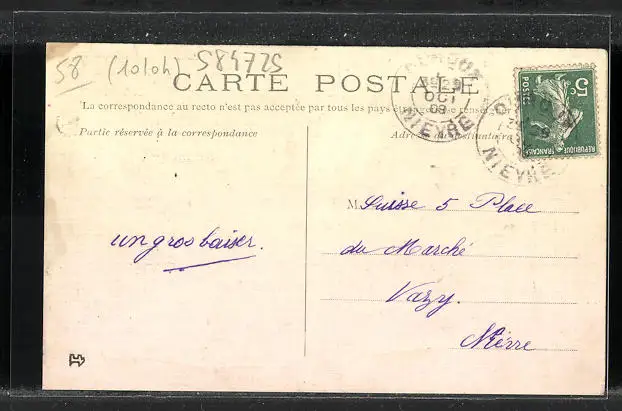 58 (10104) 584725
CARTE POSTALE
La correspondance au recto n'est pas acceptée par tous les pays
Partie réservée à la correspondance
Adresse du destinataire
5c
POSTES
REPUBLIQUE FRANCAISE
OCT
09
NIEVRE
NIEVRE
M. Suisse 5 Place
du Marché
Varzy.
Nièvre
un gros baiser.